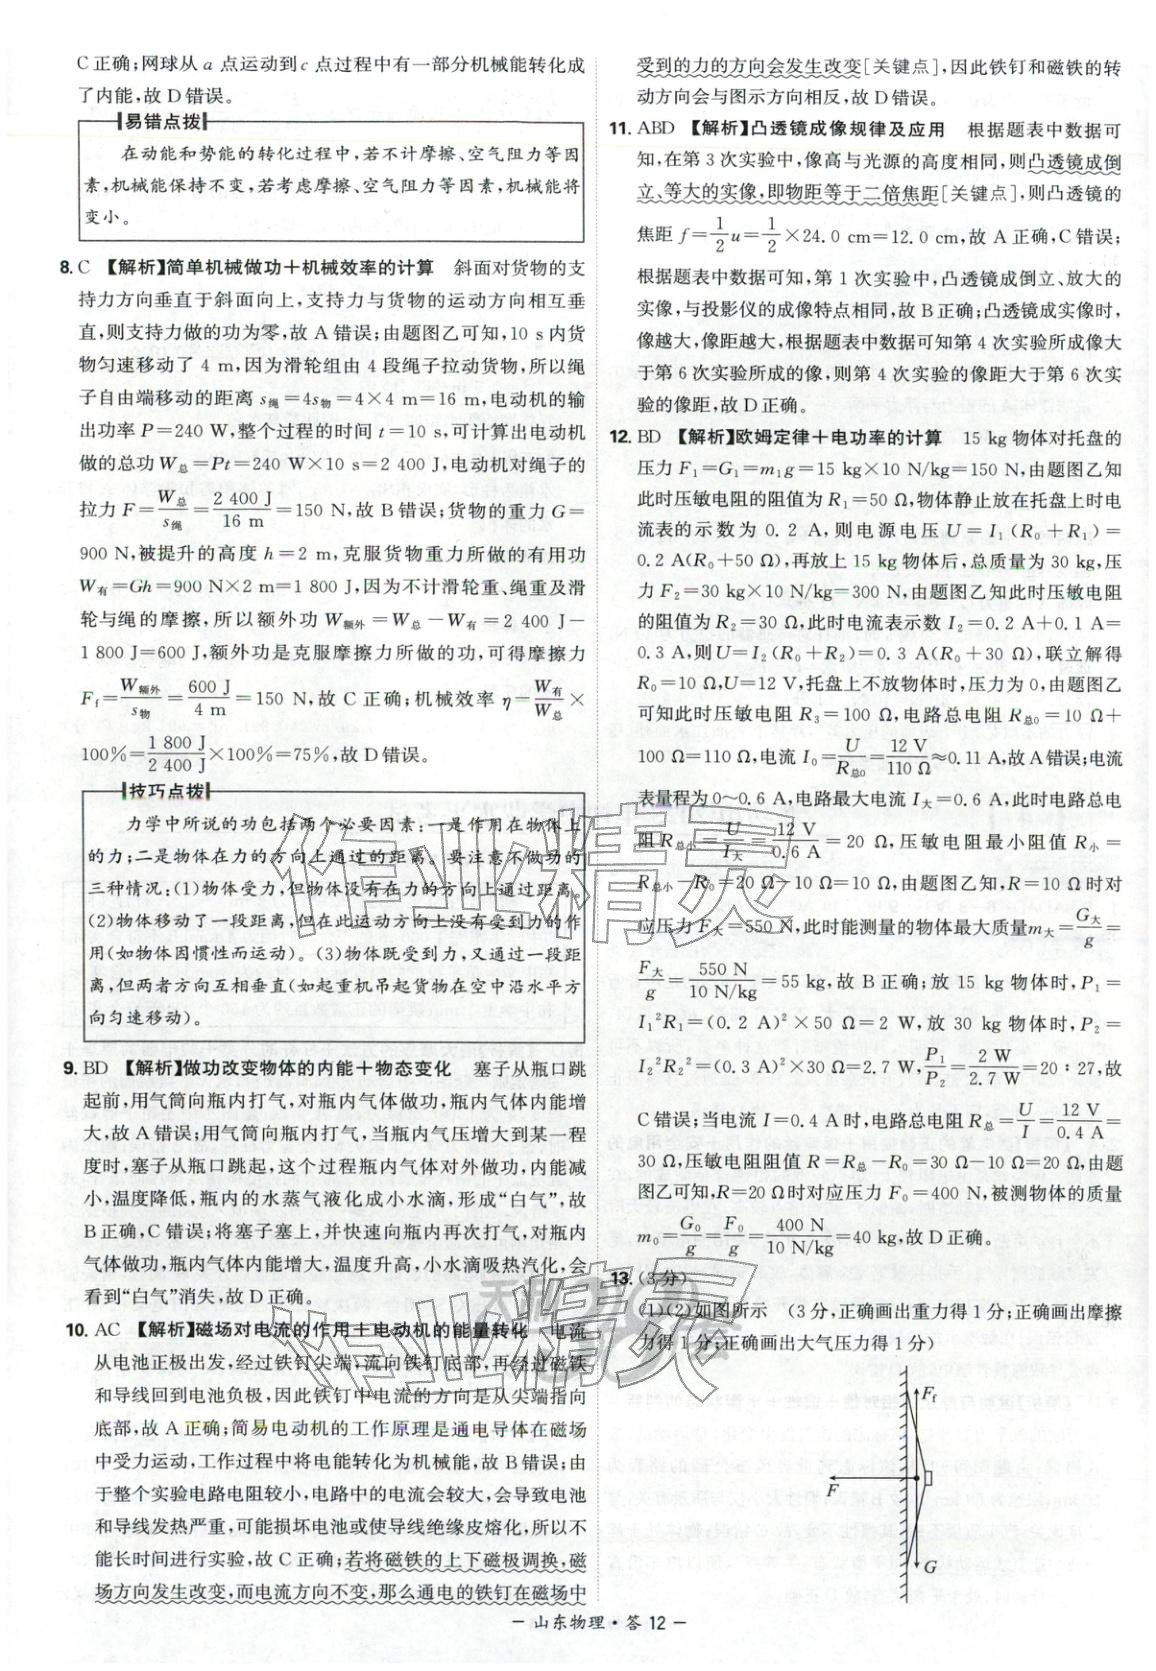 C正确;网球从a点运动到c点过程中有一部分机械能转化成
了内能,故D错误。
易错点拨
在动能和势能的转化过程中,若不计摩擦、空气阻力等因
素,机械能保持不变,若考虑摩擦、空气阻力等因素,机械能将
变小。
8. C 【解析】简单机械做功+机械效率的计算 斜面对货物的支
持力方向垂直于斜面向上,支持力与货物的运动方向相互垂
直,则支持力做的功为零,故A错误;由题图乙可知,10 s内货
物匀速移动了4 m,因为滑轮组由4段绳子拉动货物,所以绳
子自由端移动的距离s绳=4s物=4×4 m=16 m,电动机的输
出功率P=240 W,整个过程的时间t=10 s,可计算出电动机
做的总功W总=Pt=240 W×10 s=2 400 J,电动机对绳子的
拉力F=W总/s绳=2 400 J/16 m=150 N,故B错误;货物的重力G=
900 N,被提升的高度h=2 m,克服货物重力所做的有用功
W有=Gh=900 N×2 m=1 800 J,因为不计滑轮重、绳重及滑
轮与绳的摩擦,所以额外功W额外=W总-W有=2 400 J-
1 800 J=600 J,额外功是克服摩擦力所做的功,可得摩擦力
Ff=W额外/s物=600 J/4 m=150 N,故C正确;机械效率η=W有/W总×
100%=1 800 J/2 400 J×100%=75%,故D错误。
技巧点拨
力学中所说的功包括两个必要因素:一是作用在物体上
的力;二是物体在力的方向上通过的距离。要注意不做功的
三种情况:(1)物体受力,但物体没有在力的方向上通过距离。
(2)物体移动了一段距离,但在此运动方向上没有受到力的作
用(如物体因惯性而运动)。(3)物体既受到力,又通过一段距
离,但两者方向互相垂直(如起重机吊起货物在空中沿水平方
向匀速移动)。
9. BD 【解析】做功改变物体的内能+物态变化 塞子从瓶口跳
起前,用气筒向瓶内打气,对瓶内气体做功,瓶内气体内能增
大,故A错误;用气筒向瓶内打气,当瓶内气压增大到某一程
度时,塞子从瓶口跳起,这个过程瓶内气体对外做功,内能减
小,温度降低,瓶内的水蒸气液化成小水滴,形成“白气”,故
B正确,C错误;将塞子塞上,并快速向瓶内再次打气,对瓶内
气体做功,瓶内气体内能增大,温度升高,小水滴吸热汽化,会
看到“白气”消失,故D正确。
10. AC 【解析】磁场对电流的作用+电动机的能量转化 电流
从电池正极出发,经过铁钉尖端,流向铁钉底部,再经过磁铁
和导线回到电池负极,因此铁钉中电流的方向是从尖端指向
底部,故A正确;简易电动机的工作原理是通电导体在磁场
中受力运动,工作过程中将电能转化为机械能,故B错误;由
于整个实验电路电阻较小,电路中的电流会较大,会导致电池
和导线发热严重,可能损坏电池或使导线绝缘皮熔化,所以不
能长时间进行实验,故C正确;若将磁铁的上下磁极调换,磁
场方向发生改变,而电流方向不变,那么通电的铁钉在磁场中
受到的力的方向会发生改变[关键点],因此铁钉和磁铁的转
动方向会与图示方向相反,故D错误。
11. ABD 【解析】凸透镜成像规律及应用 根据题表中数据可
知,在第3次实验中,像高与光源的高度相同,则凸透镜成倒
立、等大的实像,即物距等于二倍焦距[关键点],则凸透镜的
焦距f=1/2u=1/2×24.0 cm=12.0 cm,故A正确,C错误;
根据题表中数据可知,第1次实验中,凸透镜成倒立、放大的
实像,与投影仪的成像特点相同,故B正确;凸透镜成实像时,
像越大,像距越大,根据题表中数据可知第4次实验所成像大
于第6次实验所成的像,则第4次实验的像距大于第6次实
验的像距,故D正确。
12. BD 【解析】欧姆定律+电功率的计算 15 kg物体对托盘的
压力F₁=G₁=m₁g=15 kg×10 N/kg=150 N,由题图乙知
此时压敏电阻的阻值为R₁=50 Ω,物体静止放在托盘上时电
流表的示数为0.2 A,则电源电压U=I₁(R₀+R₁)=
0.2 A(R₀+50 Ω),再放上15 kg物体后,总质量为30 kg,压
力F₂=30 kg×10 N/kg=300 N,由题图乙知此时压敏电阻
的阻值为R₂=30 Ω,此时电流表示数I₂=0.2 A+0.1 A=
0.3 A,则U=I₂(R₀+R₂)=0.3 A(R₀+30 Ω),联立解得
R₀=10 Ω,U=12 V,托盘上不放物体时,压力为0,由题图乙
可知此时压敏电阻R₃=100 Ω,电路总电阻R总0=10 Ω+
100 Ω=110 Ω,电流I₀=U/R总0=12 V/110 Ω≈0.11 A,故A错误;电流
表量程为0~0.6 A,电路最大电流I大=0.6 A,此时电路总电
阻R总小=U/I大=12 V/0.6 A=20 Ω,压敏电阻最小阻值R小=
R总小-R₀=20 Ω-10 Ω=10 Ω,由题图乙知,R=10 Ω时对
应压力F大=550 N,此时能测量的物体最大质量m大=G大/g=
F大/g=550 N/10 N/kg=55 kg,故B正确;放15 kg物体时,P₁=
I₁²R₁=(0.2 A)²×50 Ω=2 W,放30 kg物体时,P₂=
I₂²R₂²=(0.3 A)²×30 Ω=2.7 W,P₁/P₂=2 W/2.7 W=20∶27,故
C错误;当电流I=0.4 A时,电路总电阻R总=U/I=12 V/0.4 A=
30 Ω,压敏电阻阻值R=R总-R₀=30 Ω-10 Ω=20 Ω,由题
图乙可知,R=20 Ω时对应压力F₀=400 N,被测物体的质量
m₀=G₀/g=F₀/g=400 N/10 N/kg=40 kg,故D正确。
13. (3分)
(1)(2)如图所示 (3分,正确画出重力得1分;正确画出摩擦
力得1分;正确画出大气压力得1分)
Ff
F
G
作业精灵
作业精灵
— 山东物理·答 12 —